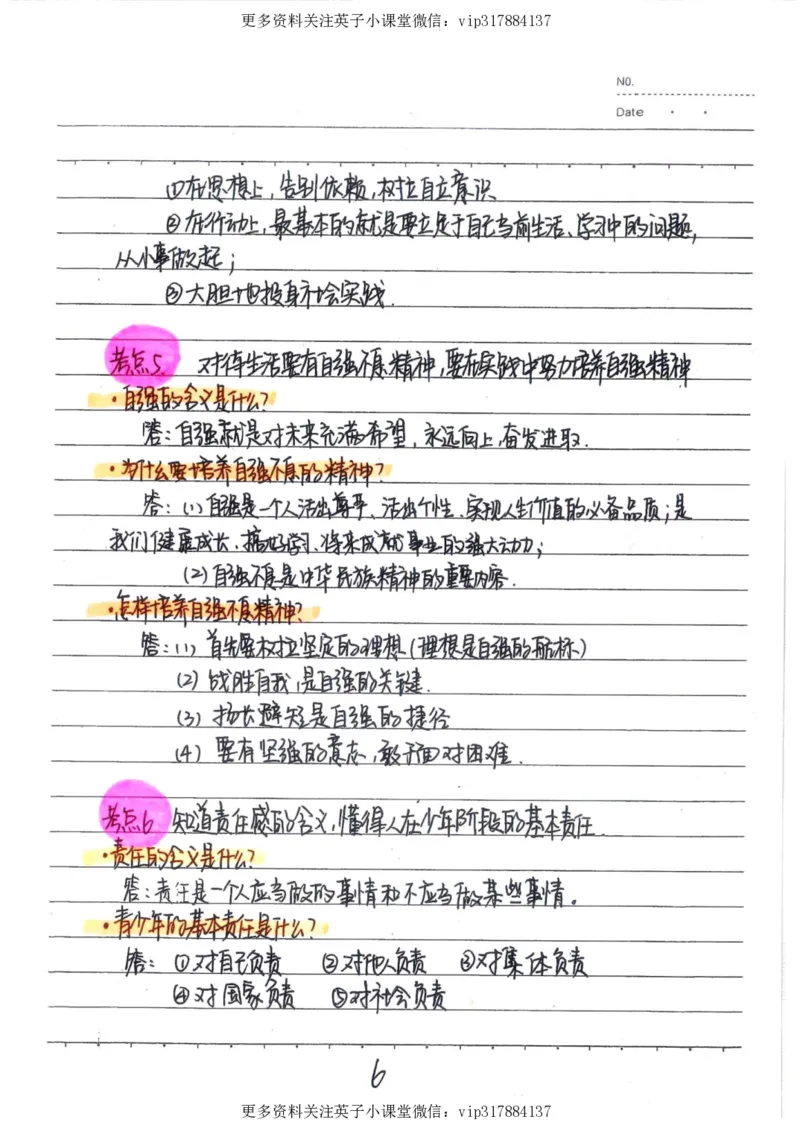 更多资料关注英子小课堂微信：vip317884137
NO.
Date
①在思想上，告别依赖，树立自立意识
②在行动上，最基本的就是要立足于自己当前生活、学习中的问题，
从小事做起；
③大胆地投身社会实践．
考点5. 对待生活要有自强不息精神，要在实践中努力培养自强精神
·自强的含义是什么？
答：自强就是对未来充满希望，永远向上，奋发进取．
·为什么要培养自强不息的精神？
答：（1）自强是一个人活出尊严、活出个性、实现人生价值的必备品质；是
我们健康成长、搞好学习、将来成就事业的强大动力；
（2）自强不息是中华民族精神的重要内容．
·怎样培养自强不息精神？
答：（1）首先要树立坚定的理想（理想是自强的航标）
（2）战胜自我，是自强的关键．
（3）扬长避短是自强的捷径
（4）要有坚强的意志，敢于面对困难．
考点6 知道责任感的含义，懂得人在少年阶段的基本责任．
·责任的含义是什么？
答：责任是一个人应当做的事情和不应当做某些事情。
·青少年的基本责任是什么？
答：①对自己负责 ②对他人负责 ③对集体负责
④对国家负责 ⑤对社会负责
6
更多资料关注英子小课堂微信：vip317884137